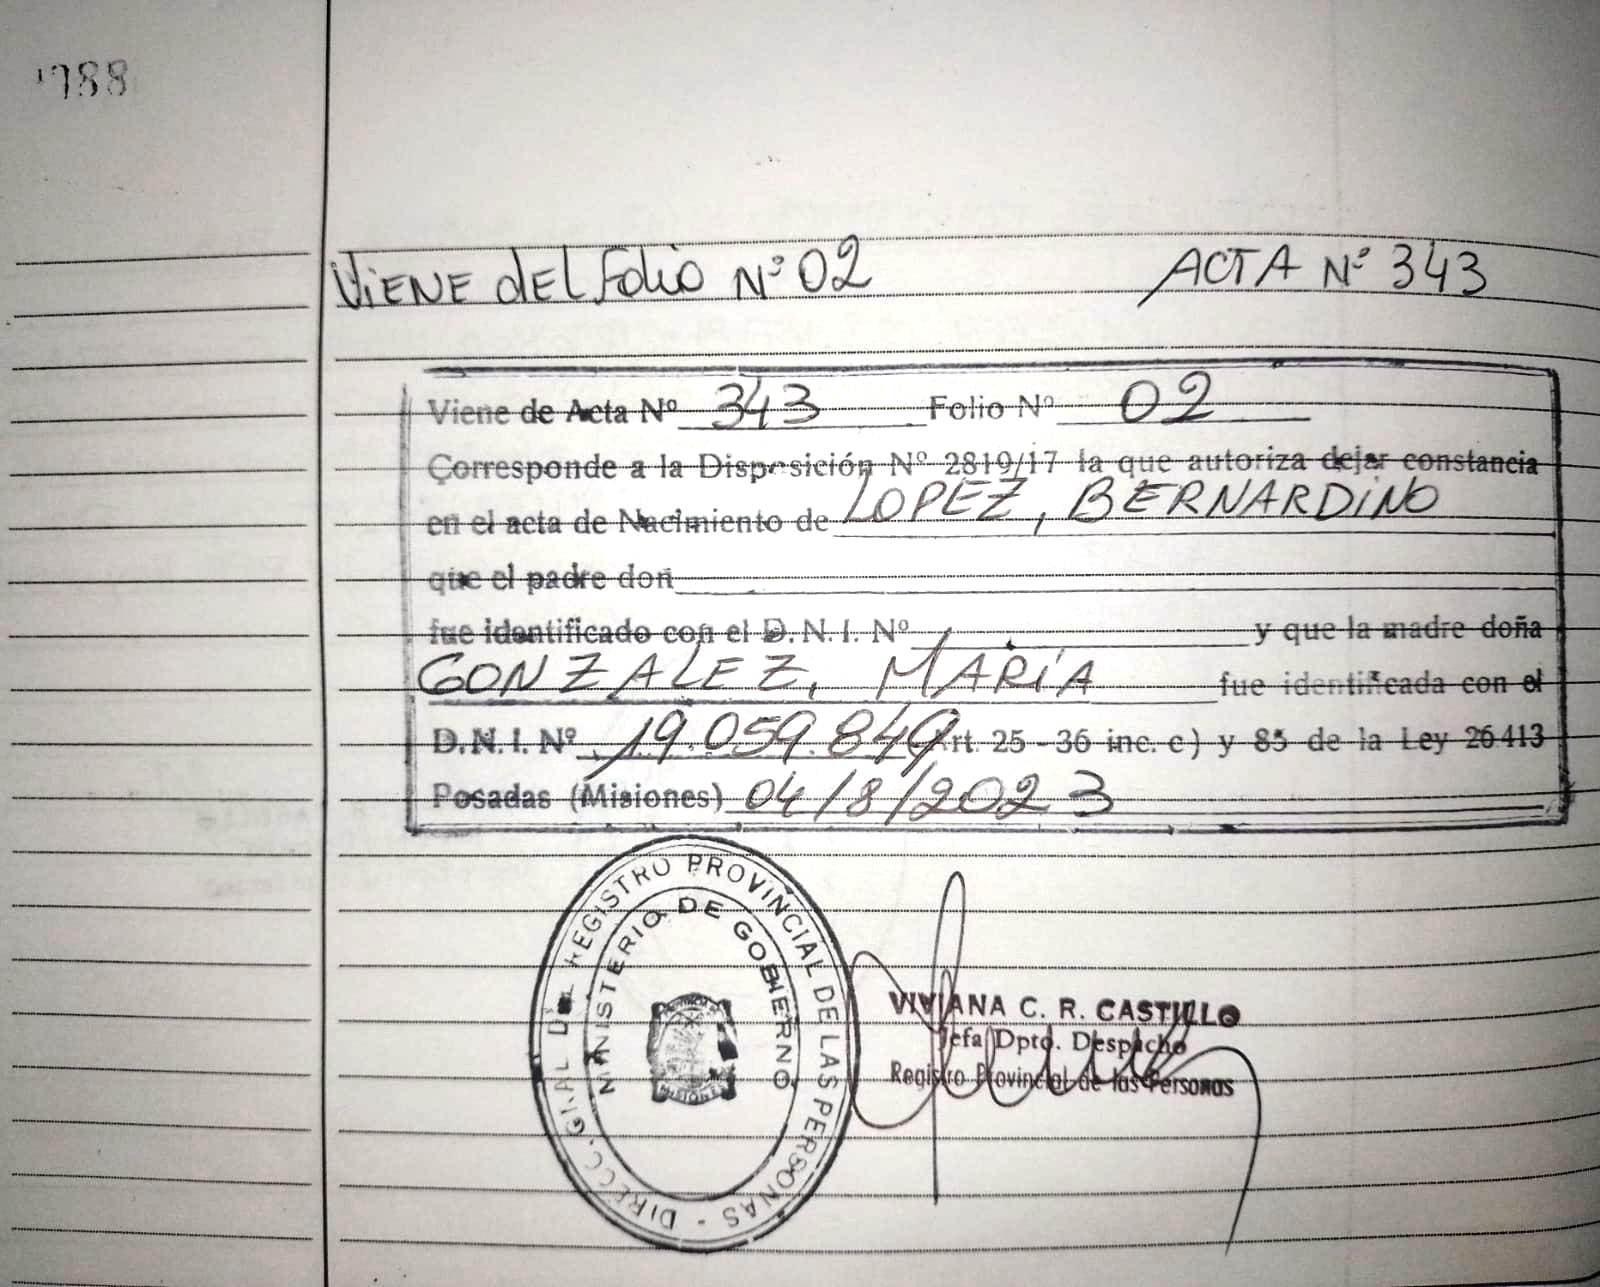 1988
Viene del folio Nº 02 ACTA Nº 343
Viene de Acta Nº 343 Folio Nº 02
Corresponde a la Disposición Nº 2819/17 la que autoriza dejar constancia
en el acta de Nacimiento de LOPEZ, BERNARDINO
que el padre don
fue identificado con el D.N.I. Nº y que la madre doña
GONZALEZ, MARÍA fue identificada con el
D.N.I. Nº 19.059.849 Art. 25 - 36 inc. c) y 85 de la Ley 26413
Posadas (Misiones) 04/8/2023
DIRECC. GRAL DEL REGISTRO PROVINCIAL DE LAS PERSONAS -
MINISTERIO DE GOBIERNO
MISIONES
VIVIANA C. R. CASTILLO
Jefa Dpto. Despacho
Registro Provincial de las Personas